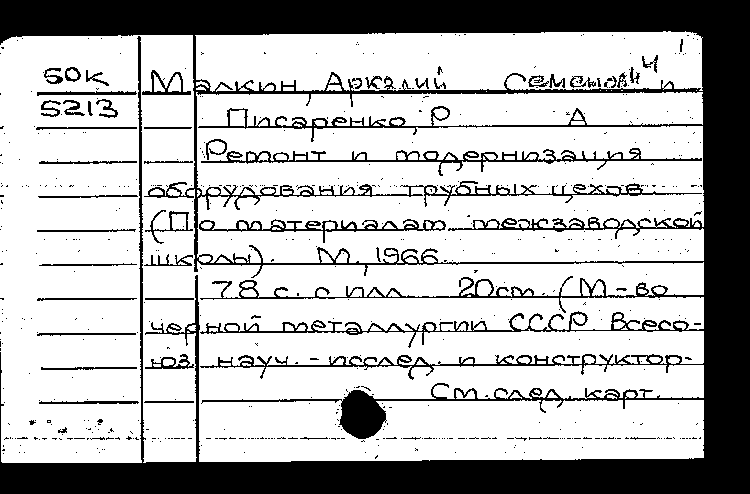 1
50К Малкин, Аркадий Семенович и
5213 Писаренко, Р А
Ремонт и модернизация
оборудования трубных цехов.
(По материалам межзаводской
школы). М., 1966.
78 с. с илл. 20см. (М-во
черной металлургии СССР. Всесо-
юз. науч.-исслед. и конструктор-
См. след. карт.